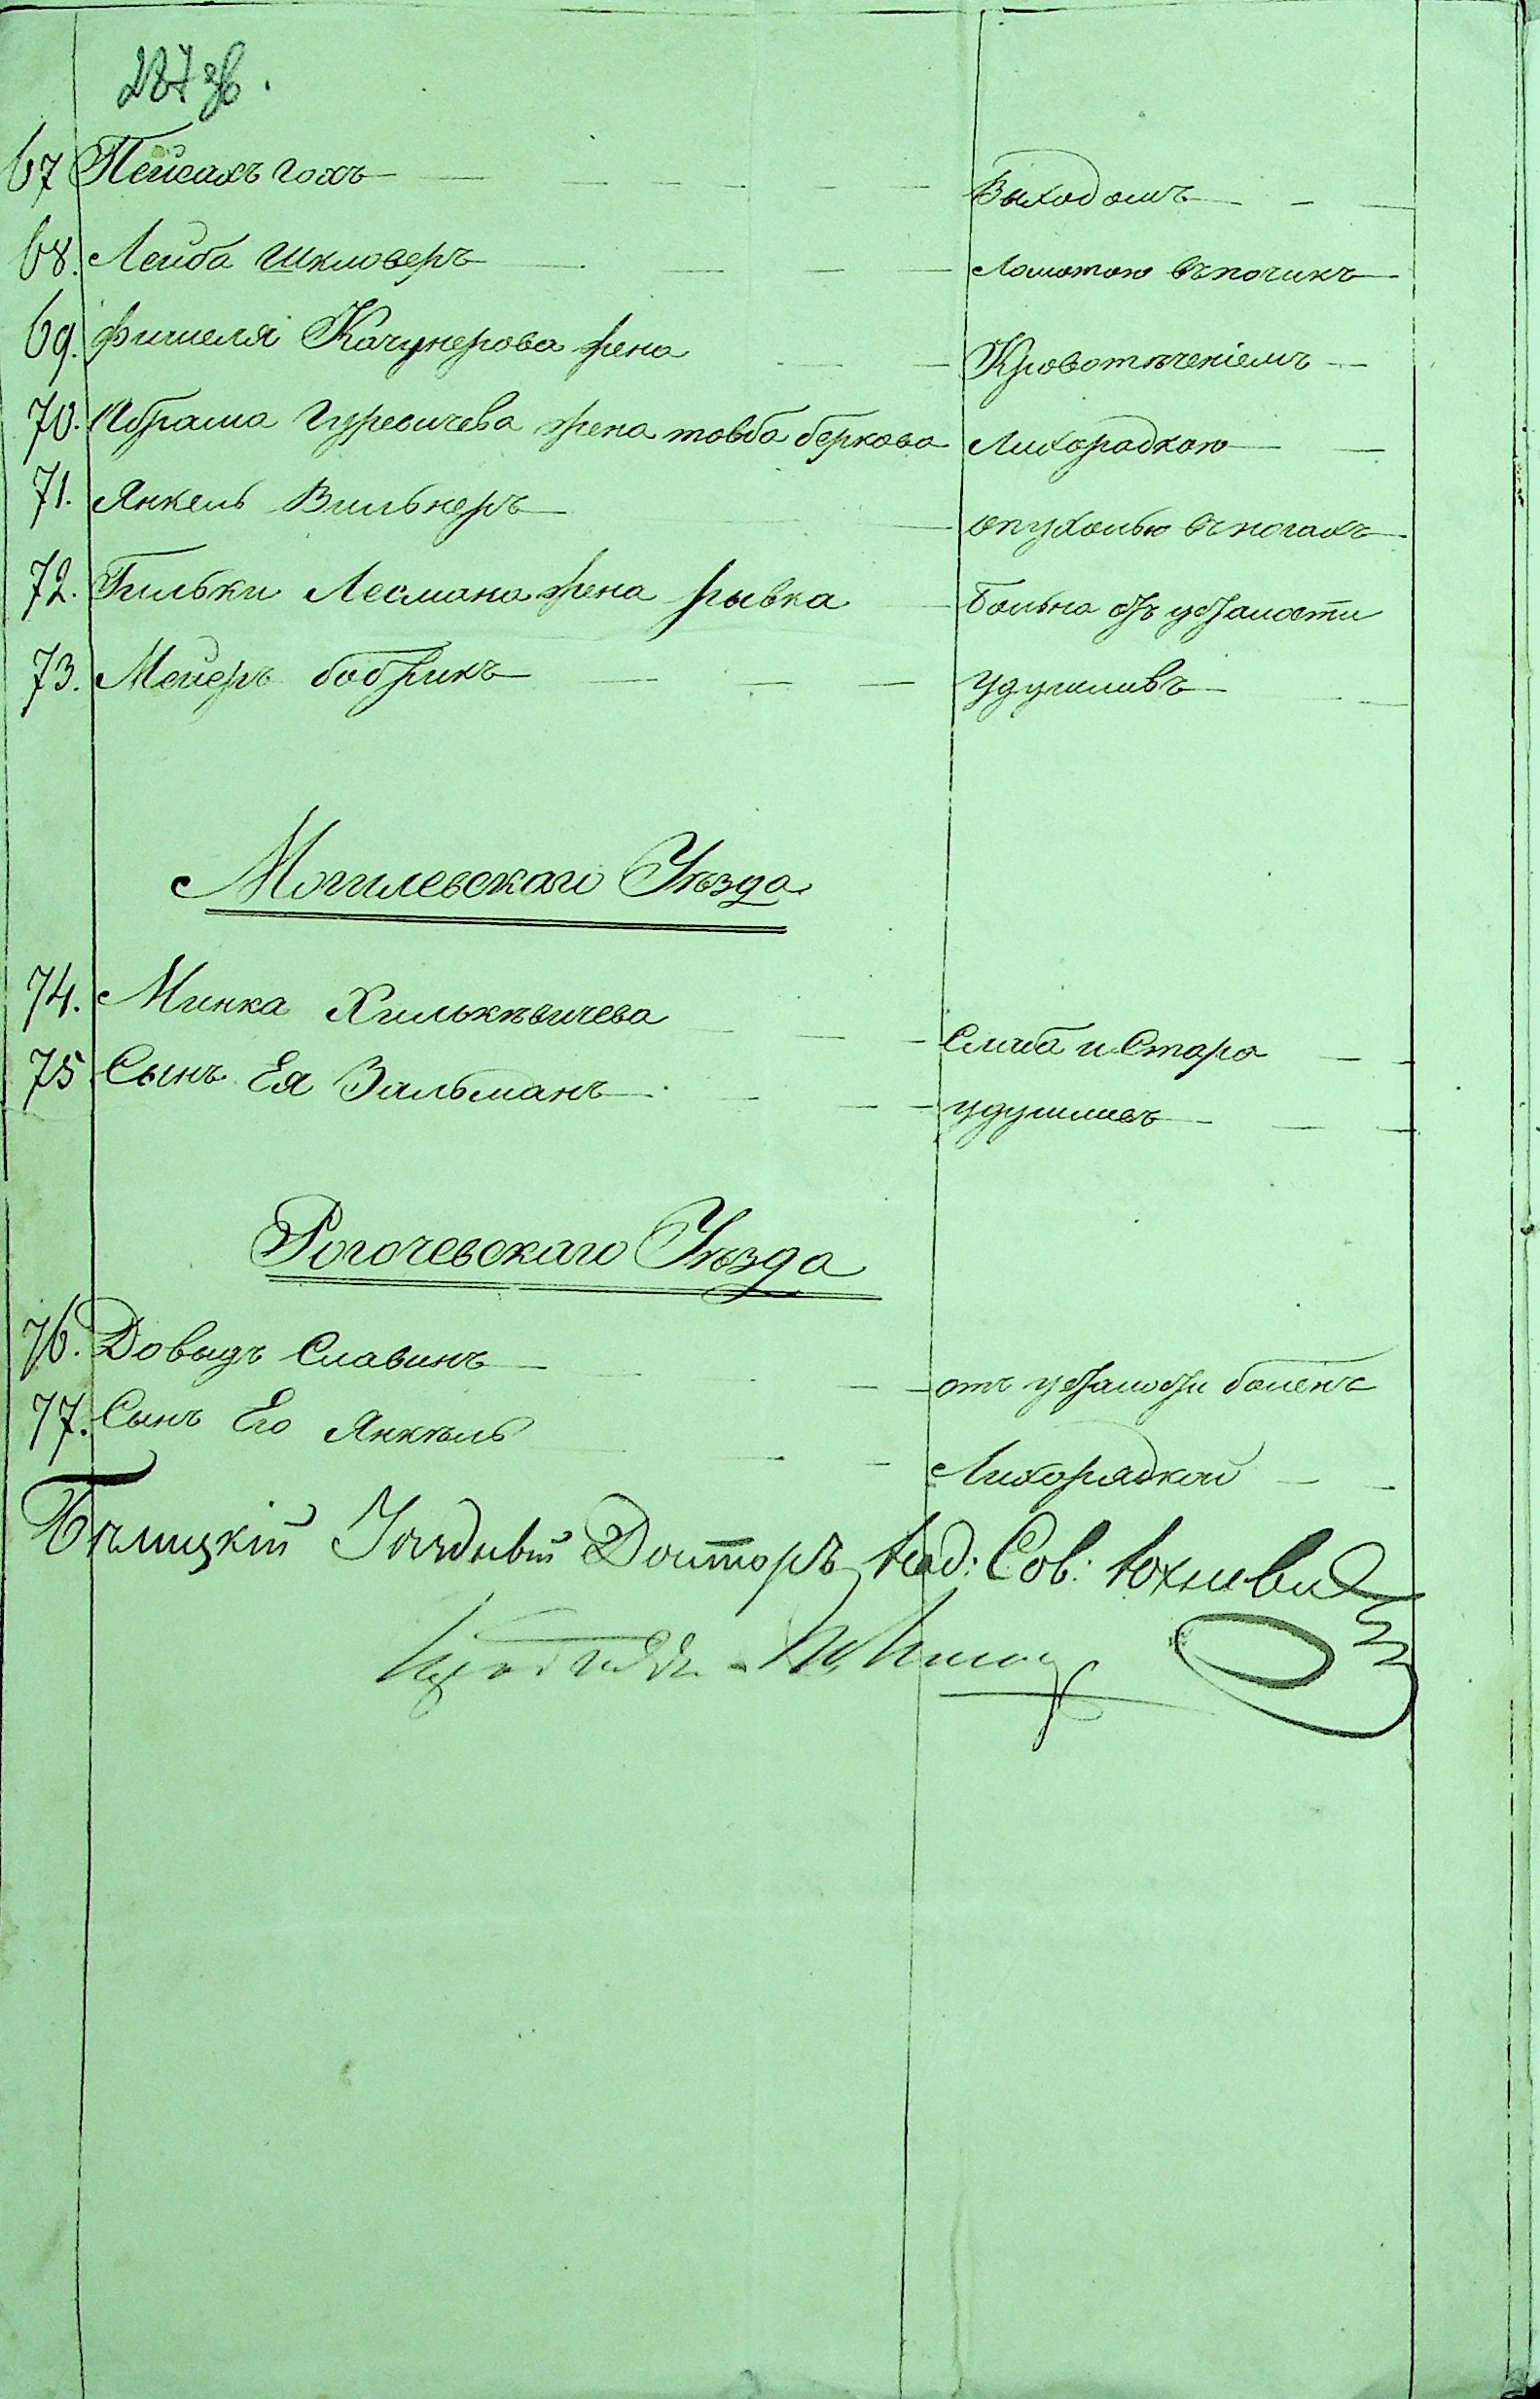 287 об.
67 Пейсахъ гохъ Выходомъ
68. Лейба Шкловеръ Ломотою въ погикъ
69. Фишеля Качунерова жена Кровотѣченіемъ
70. Абрама Гуревичева жена товба беркова Лихорадкою
71. Янкель Вильнеръ опухолью въ ногахъ
72. Гильки Лесмана жена рывка Больна отъ усталости
73. Мейеръ бобрикъ удушливъ
Могилевскаго Уѣзда
74. Минка Хилькѣвичева Слаба и Стара
75 Сынъ Ея Зальманъ удушливъ
Рогочевскаго Уѣзда
76. Довыдъ Славинъ отъ усталости боленъ
77. Сынъ Его Янкѣль Лихорядкой
Бѣлицкій Уѣздный Докторъ Над: Сов: